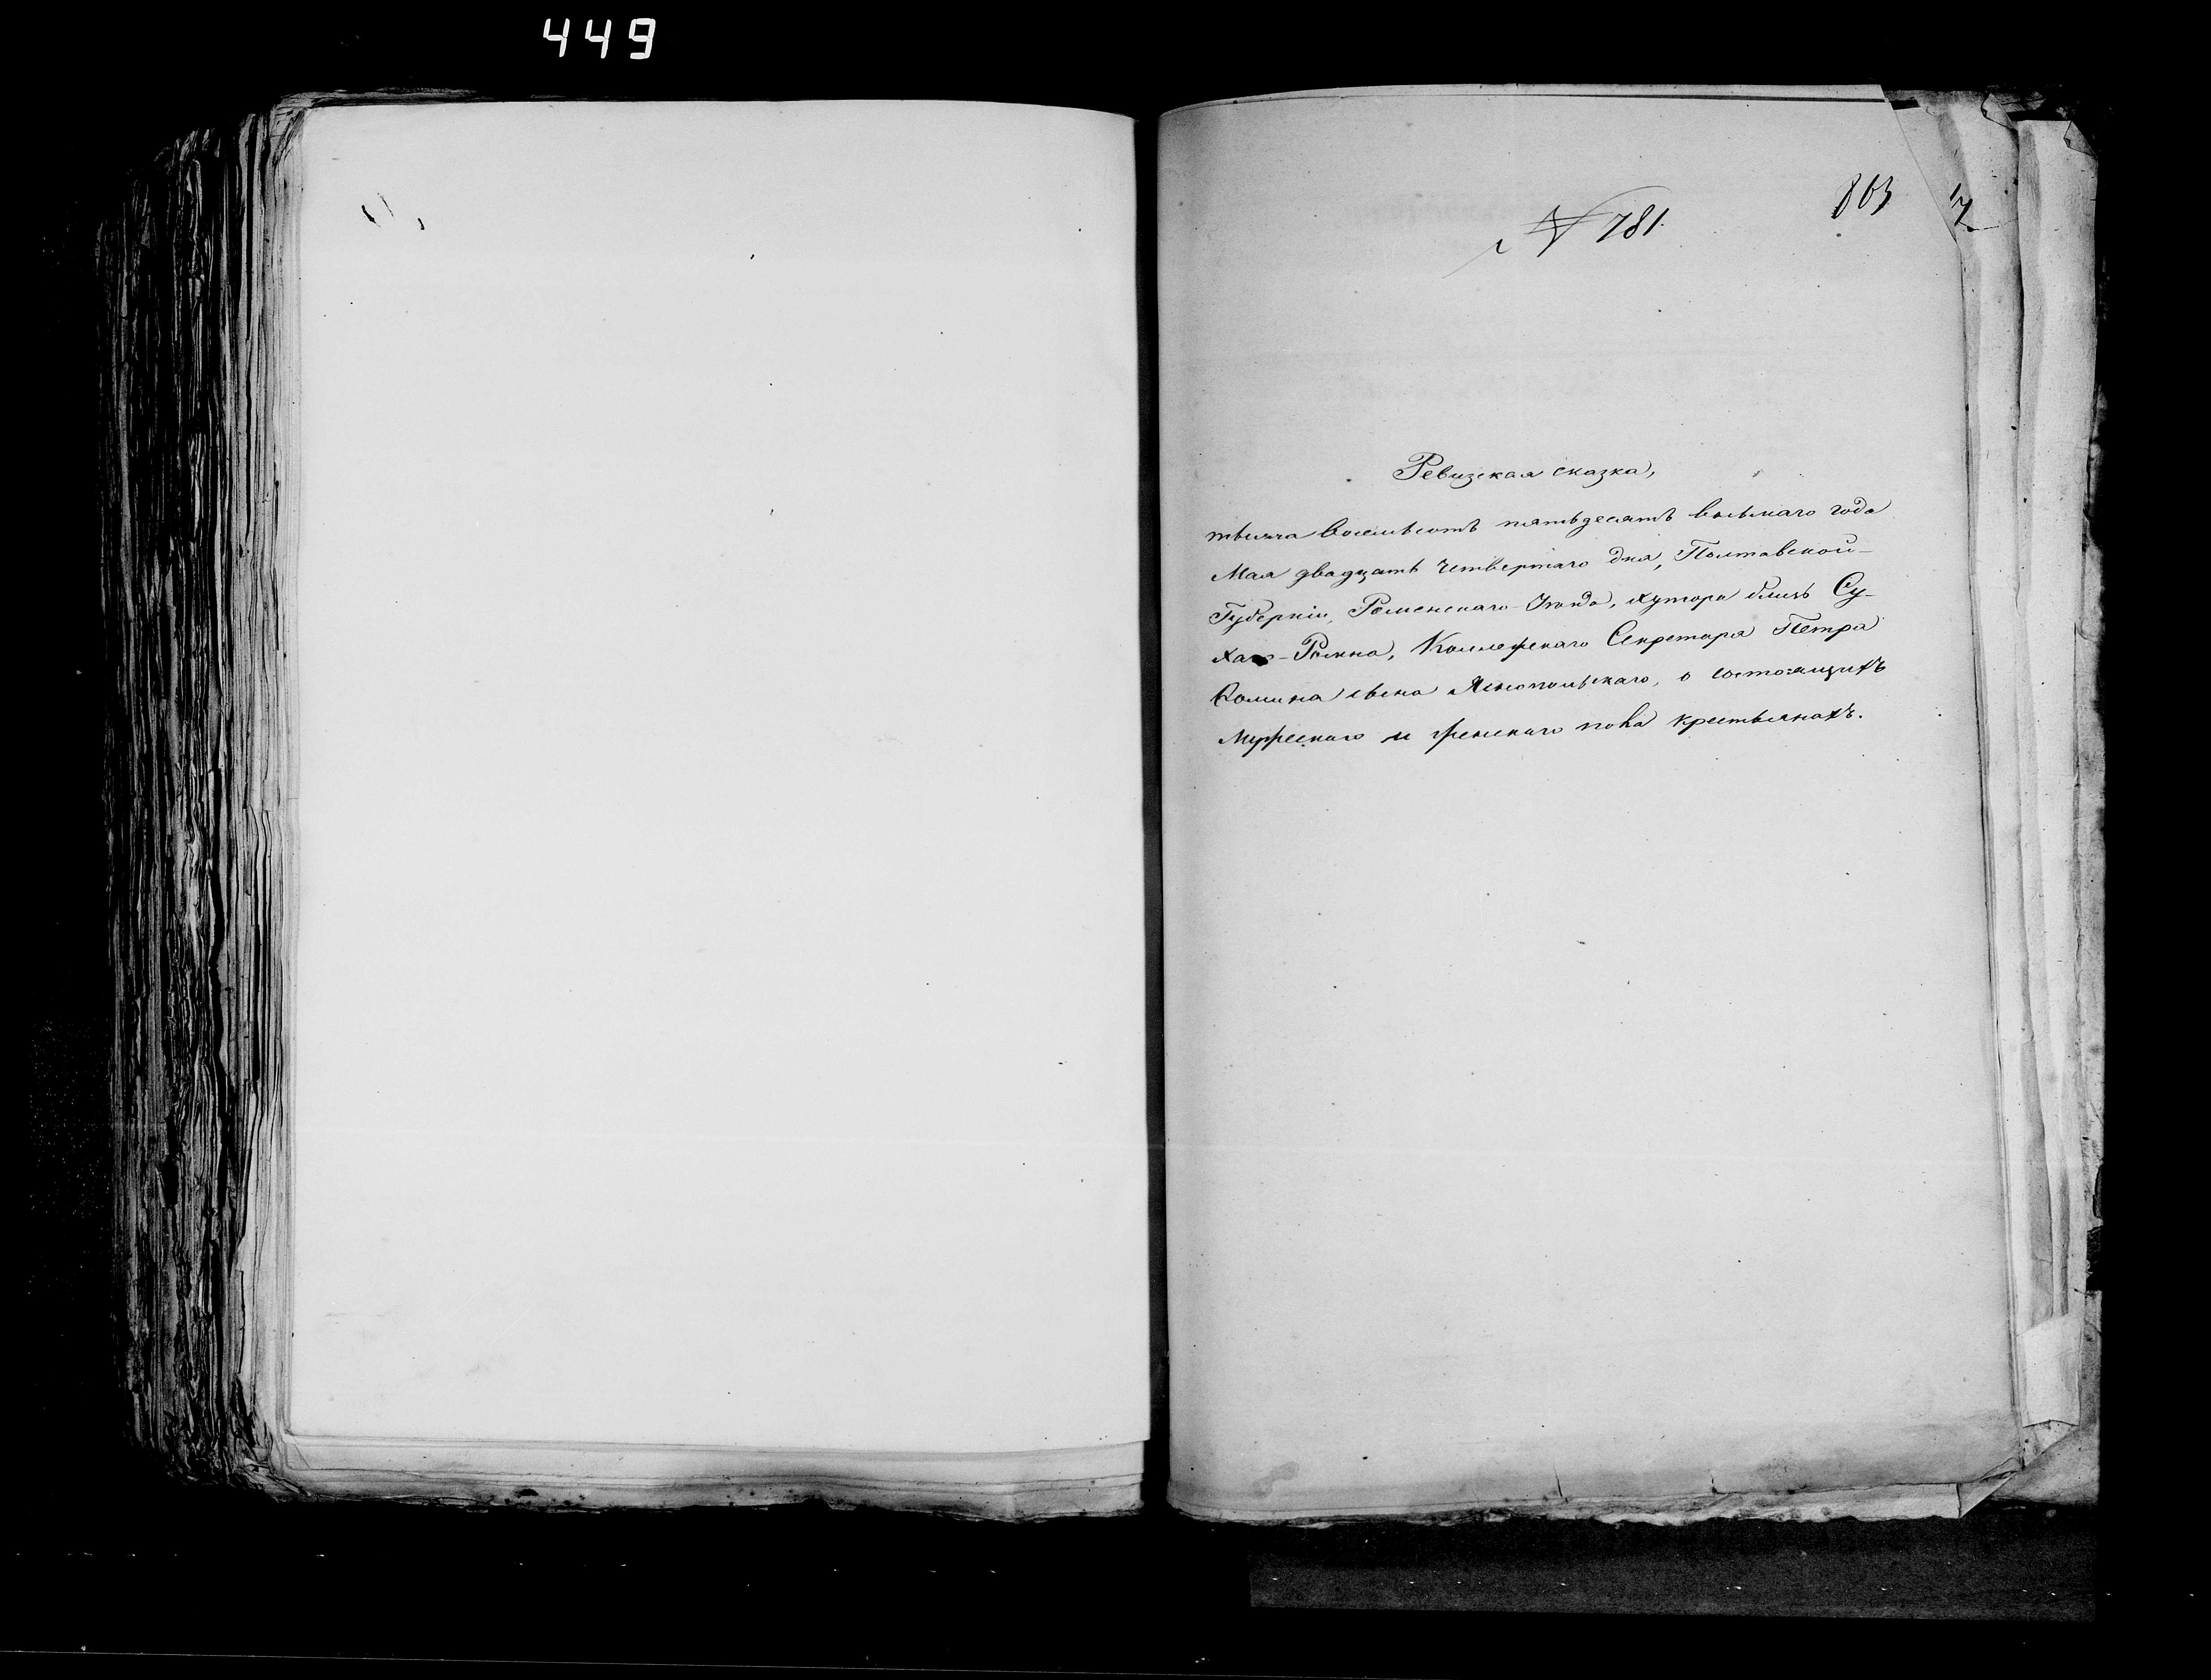 449
863
№ 781.
Ревизская сказка,
тысяча восемьсотъ пятьдесятъ восьмаго года
Мая двадцать четвертаго дня, Полтавской
Губерніи, Роменскаго Уѣзда, хутора близь Су-
хаго-Ромна, Коллежскаго Секретаря Петра
сына Яснопольскаго, о состоящихъ
мужескаго и женскаго пола крестьянахъ.